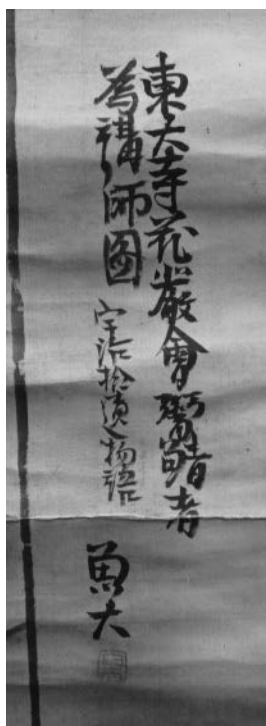 東大寺花嚴會鬻鯖者
為講師圖 宇治拾遺物語
魚大